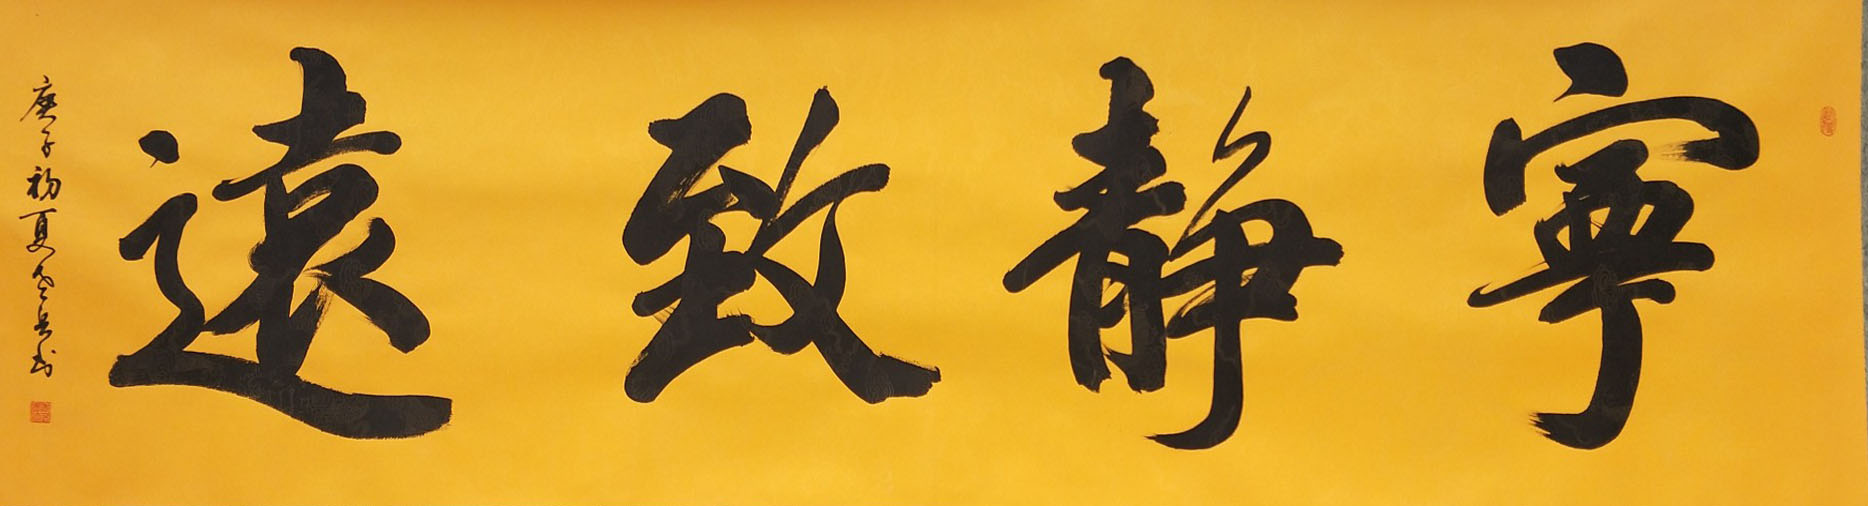 寧靜致遠
庚子初夏